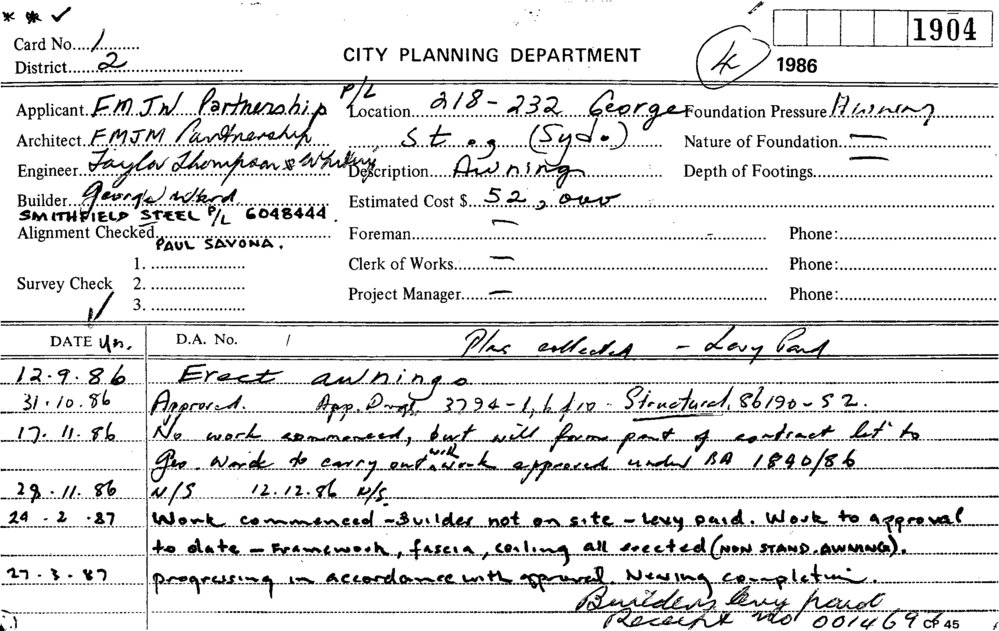 1904
Card No....1........
District......2..............................
CITY PLANNING DEPARTMENT
4
1986
Applicant FMJM Partnership P/L
Location 218-232 George
Foundation Pressure Awning
Architect FMJM Partnership
St., (Syd.)
Nature of Foundation —
Engineer Taylor Thompson & Whiting
Description Awning
Depth of Footings —
Builder George Ward
Estimated Cost $ 52,000
SMITHFIELD STEEL P/L 6048444.
Alignment Checked
PAUL SAVONA.
Foreman —
Phone:
Survey Check
1.
2.
3.
Clerk of Works —
Phone:
Project Manager —
Phone:
DATE
D.A. No. /
Plans collected - Levy Paid
12.9.86 Erect awnings
31.10.86 Approved. App. Drgs. 3794-1, 6 & 10 - Structural. 86190-S2.
17.11.86 No work commenced, but will form part of contract let to
Geo. Ward to carry out with work approved under BA 1840/86
28.11.86 N/S 12.12.86 N/S
24-2-87 Work commenced - Builder not on site - Levy paid. Work to approval
to date - Framework, fascia, ceiling all erected (NON STAND. AWNING).
27-3-87 progressing in accordance with approval. Nearing completion.
Builders levy paid
Receipt no 001469
CP 45